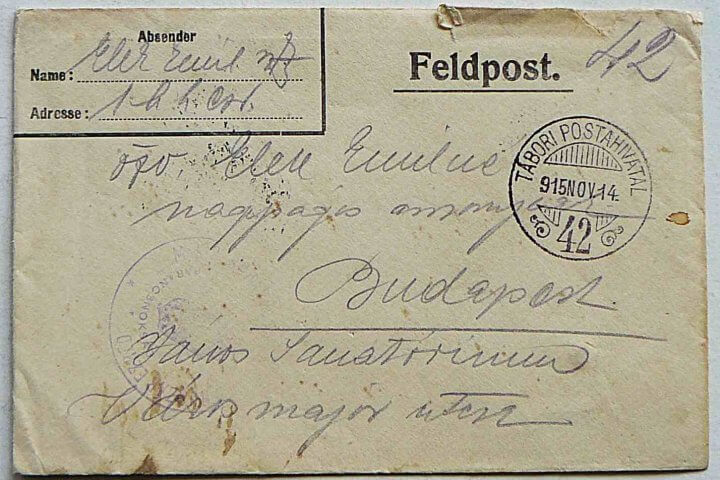 Absender
Name: Elek Emil
Adresse: 1. h. h.
Feldpost.
42
TÁBORI POSTAHIVATAL
915 NOV. 14.
42
özv. Elek Emilné
nagyságos
Budapest
PARANCSNOK
János Sanatórium
Városmajor utca